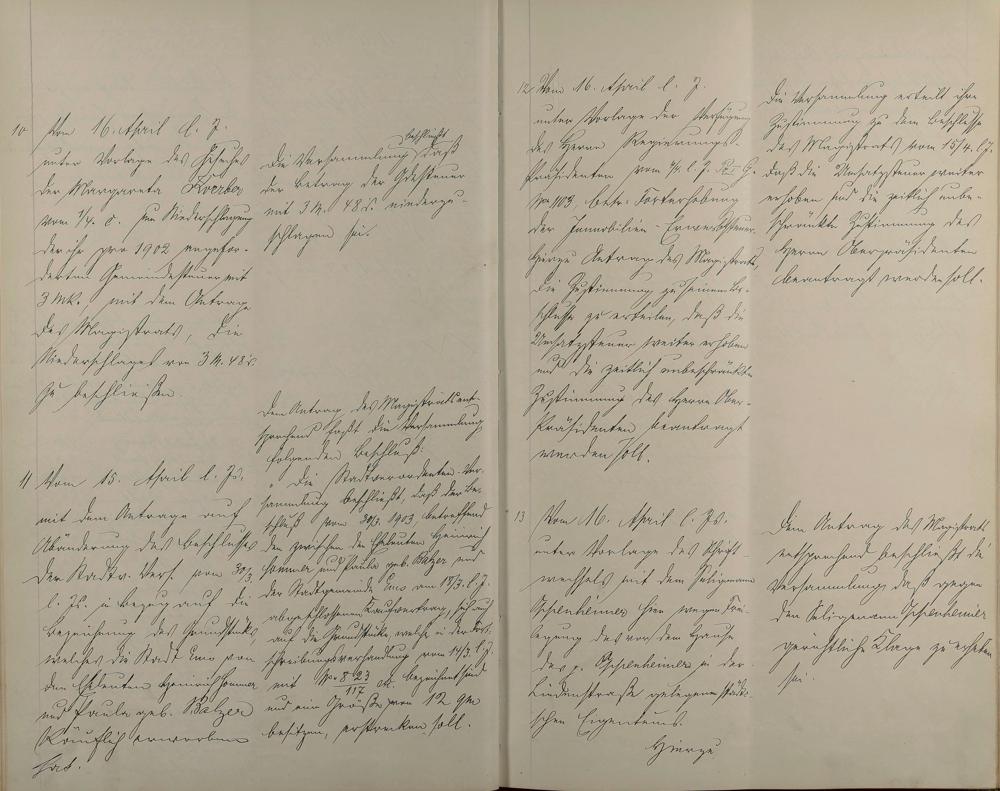 10 Vom 16. April l. J.
unter Vorlage des Gesuches
der Margareta Koerber
vom 7/4. d. um Niederschlagung
der ihr pro 1902 angefor-
derten Gemeindesteuer mit
3 Mk. mit dem Antrage
des Magistrats, die
Niederschlagung von 3 M. 48 d.
zu beschließen.
beschließt
Die Versammlung daß
der Betrag der Gdesteuer
mit 3 M. 48 d. niederzu-
schlagen sei.
11 Vom 15. April l. Js.
mit dem Antrage auf
Abänderung des Beschlusses
der Stadtv. Vers. vom 30/3.
l. Js. in Bezug auf die
Bezeichnung des Grundstücks
welches die Stadt Ems von
den Eheleuten Heinrich Sommer
und Paula geb. Balzer
käuflich erworben
hat.
Dem Antrag des Magistrats ent-
sprechend faßt die Versammlung
folgenden Beschluß:
" Die Stadtverordneten-Ver-
sammlung beschließt, daß der Be-
schluß vom 30/3. 1903, betreffend
den zwischen den Eheleuten Heinrich
Sommer und Paula geb. Balzer und
der Stadtgemeinde Ems am 18/3. l. J.
abgeschlossenen Kaufvertrag, sich auch
auf die Grundstücke, welche in der Fort-
schreibungsverhandlung vom 14/3. l. J.
mit No 823/117 bezeichnet sind
und eine Größe von 12 qm
besitzen, erstrecken soll.
12 Vom 16. April l. J.
unter Vorlage der Verfügung
des Herrn Regierungs-
Präsidenten vom l. J.
No 1103, betr. Forterhebung
der Immobilien-Erwerbssteuer.
Hierzu Antrag des Magistrats,
die Zustimmung zu seinem Be-
schlusse zu erteilen, daß die
Umsatzsteuer weiter erhoben
und die zeitlich unbeschränkte
Zustimmung des Herrn Ober-
Präsidenten beantragt
werden soll.
Die Versammlung erteilt ihre
Zustimmung zu dem Beschlusse
des Magistrats vom 15/4. l. J.
daß die Umsatzsteuer weiter
erhoben und die zeitlich unbe-
schränkte Zustimmung des
Herrn Oberpräsidenten
beantragt werden soll.
13 Vom 16. April l. Js.
unter Vorlage des Schrift-
wechsels mit dem Seligmann
Oppenheimer hier wegen Frei-
legung des vor dem Hause
des p. Oppenheimer in der
Lindenstraße gelegenen städti-
schen Eigentums.
Hierzu
Dem Antrag des Magistrats
entsprechend beschließt die
Versammlung, daß gegen
den Seligmann Oppenheimer
gerichtliche Klage zu erheben
sei.